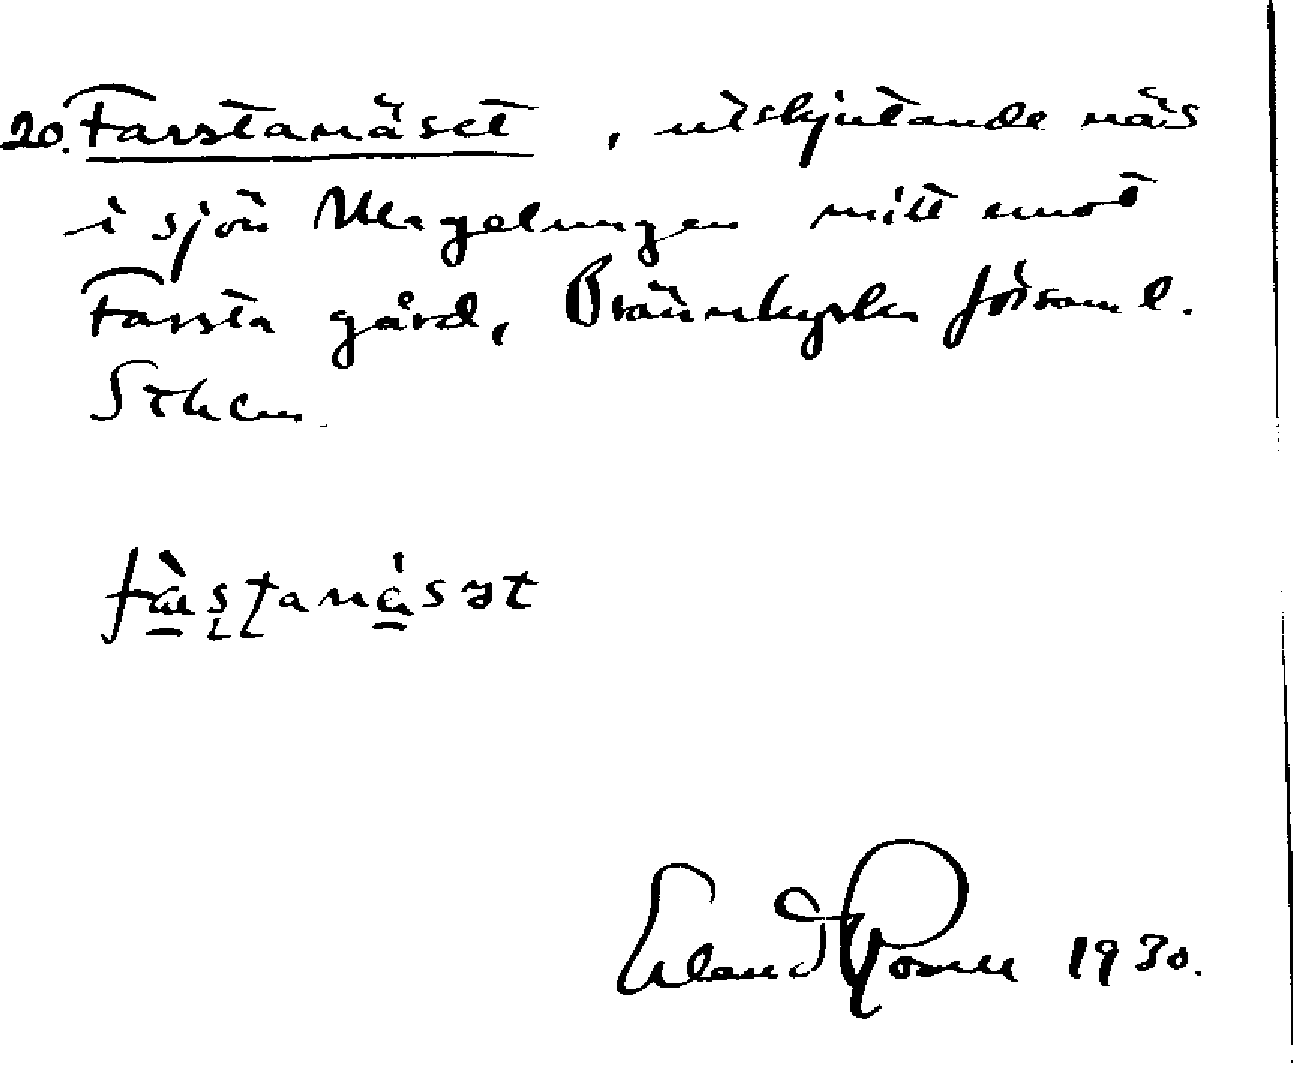 20. Farstanäset, utskjutande näs
i sjön Magelungen mitt emot
Farsta gård, Brännkyrka församl.
Sthlm.
Erland Rosell 1930.